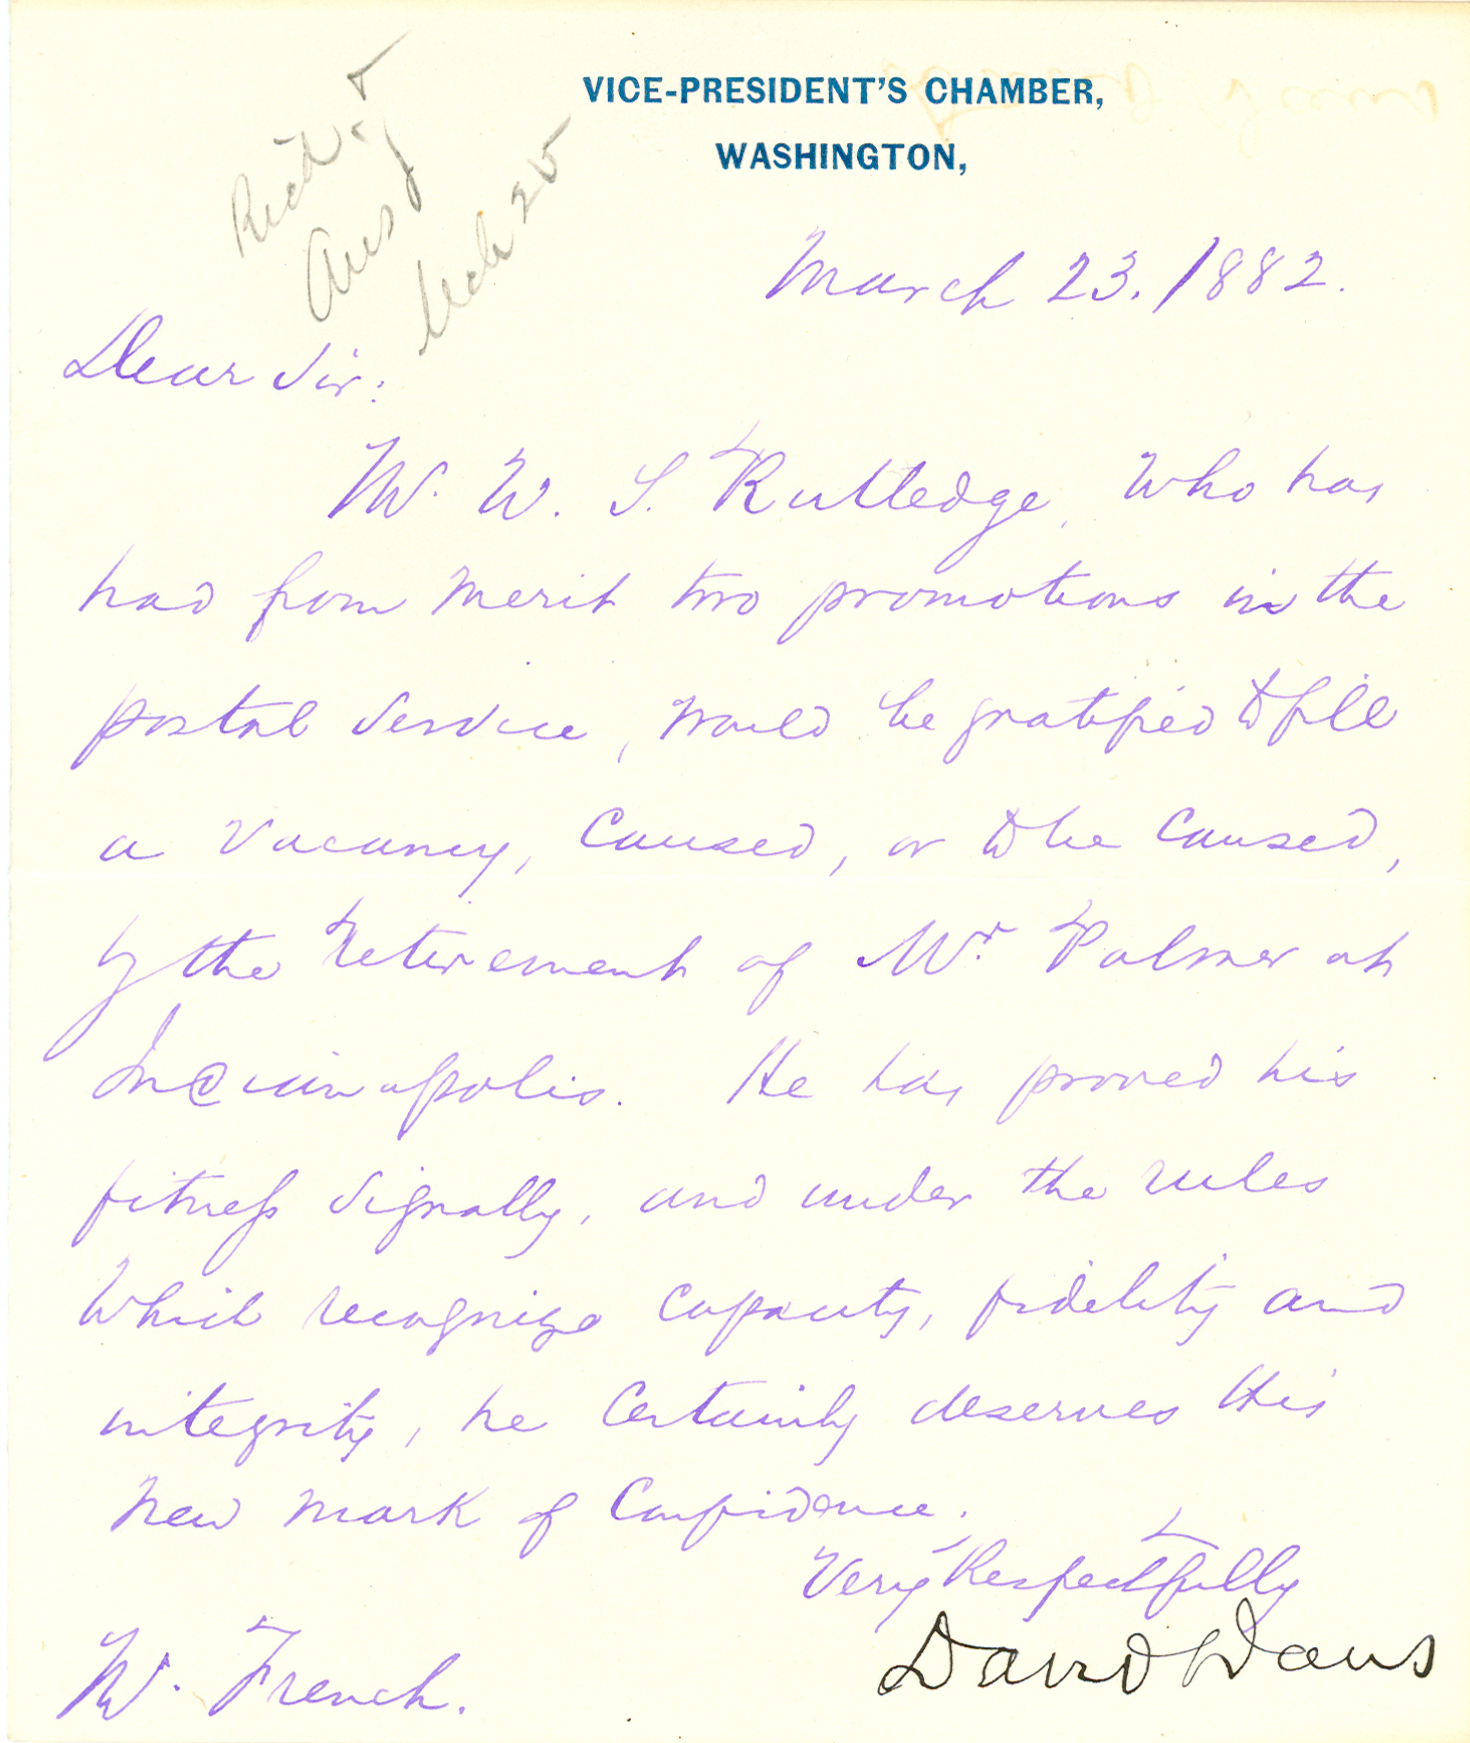 VICE-PRESIDENT'S CHAMBER,
WASHINGTON,
Rec'd &
Ans
Mch 25
March 23. 1882.
Dear Sir:
Mr. W. S. Rutledge, who has
had from merit two promotions in the
postal service, would be gratified to fill
a vacancy, caused, or to be caused,
by the retirement of Mr. Palmer at
Indianapolis. He has proved his
fitness signally, and under the rules
which recognize capacity, fidelity and
integrity, he certainly deserves this
new mark of confidence.
Very Respectfully
David Davis
Mr. French.